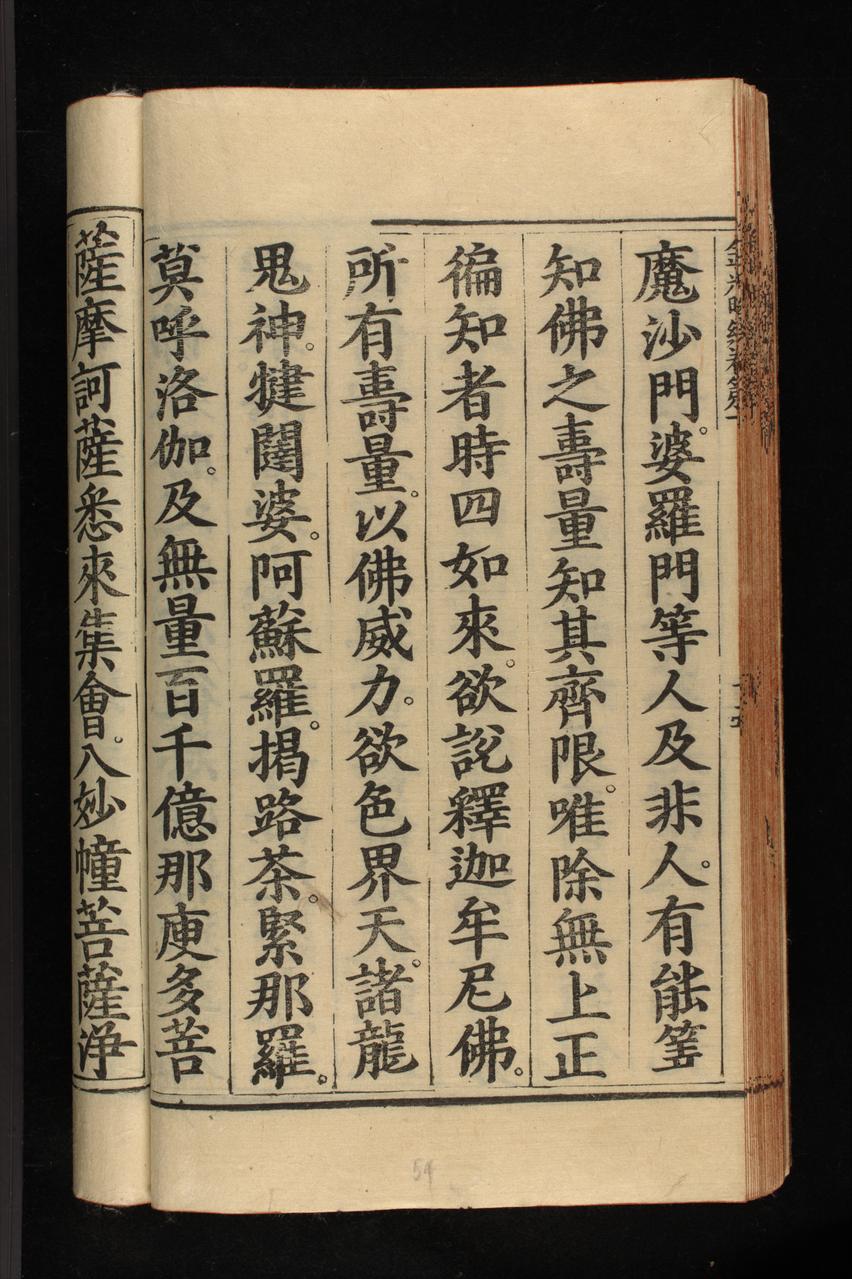 魔沙門。婆羅門等人及非人。有能筭
知佛之壽量知其齊限。唯除無上正
徧知者時四如來。欲說釋迦牟尼佛。
所有壽量。以佛威力。欲色界天。諸龍
鬼神。犍闥婆。阿蘇羅。揭路茶。緊那羅。
莫呼洛伽。及無量百千億那庾多菩
薩摩訶薩悉來集會。入妙幢菩薩淨
54